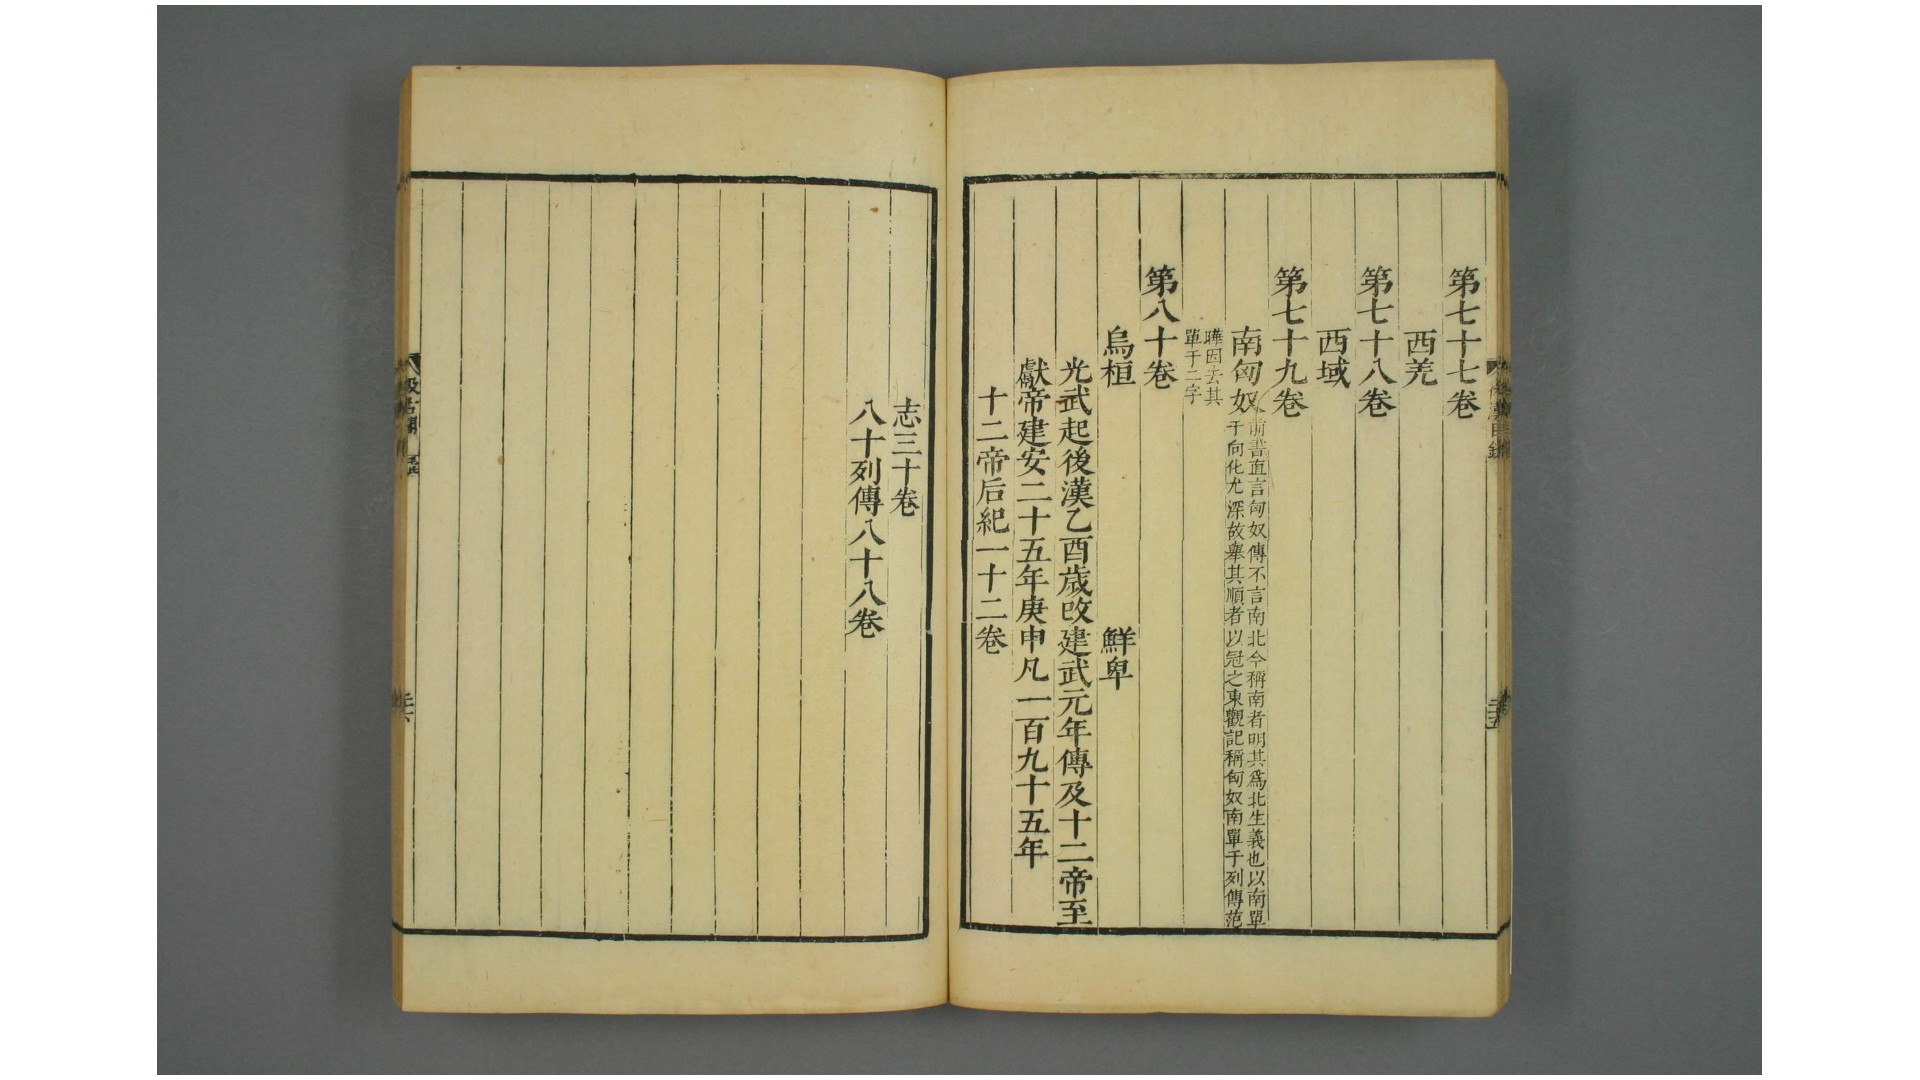 第七十七卷
西羌
第七十八卷
西域
第七十九卷
南匈奴
前書直言匈奴傳不言南北今稱南者明其爲北生義也以南單
于向化尤深故舉其順者以冠之東觀記稱匈奴南單于列傳范
曄因去其
單于二字
第八十卷
烏桓 鮮卑
光武起後漢乙酉歲改建武元年傳及十二帝至
獻帝建安二十五年庚申凡一百九十五年
十二帝后紀一十二卷
志三十卷
八十列傳八十八卷